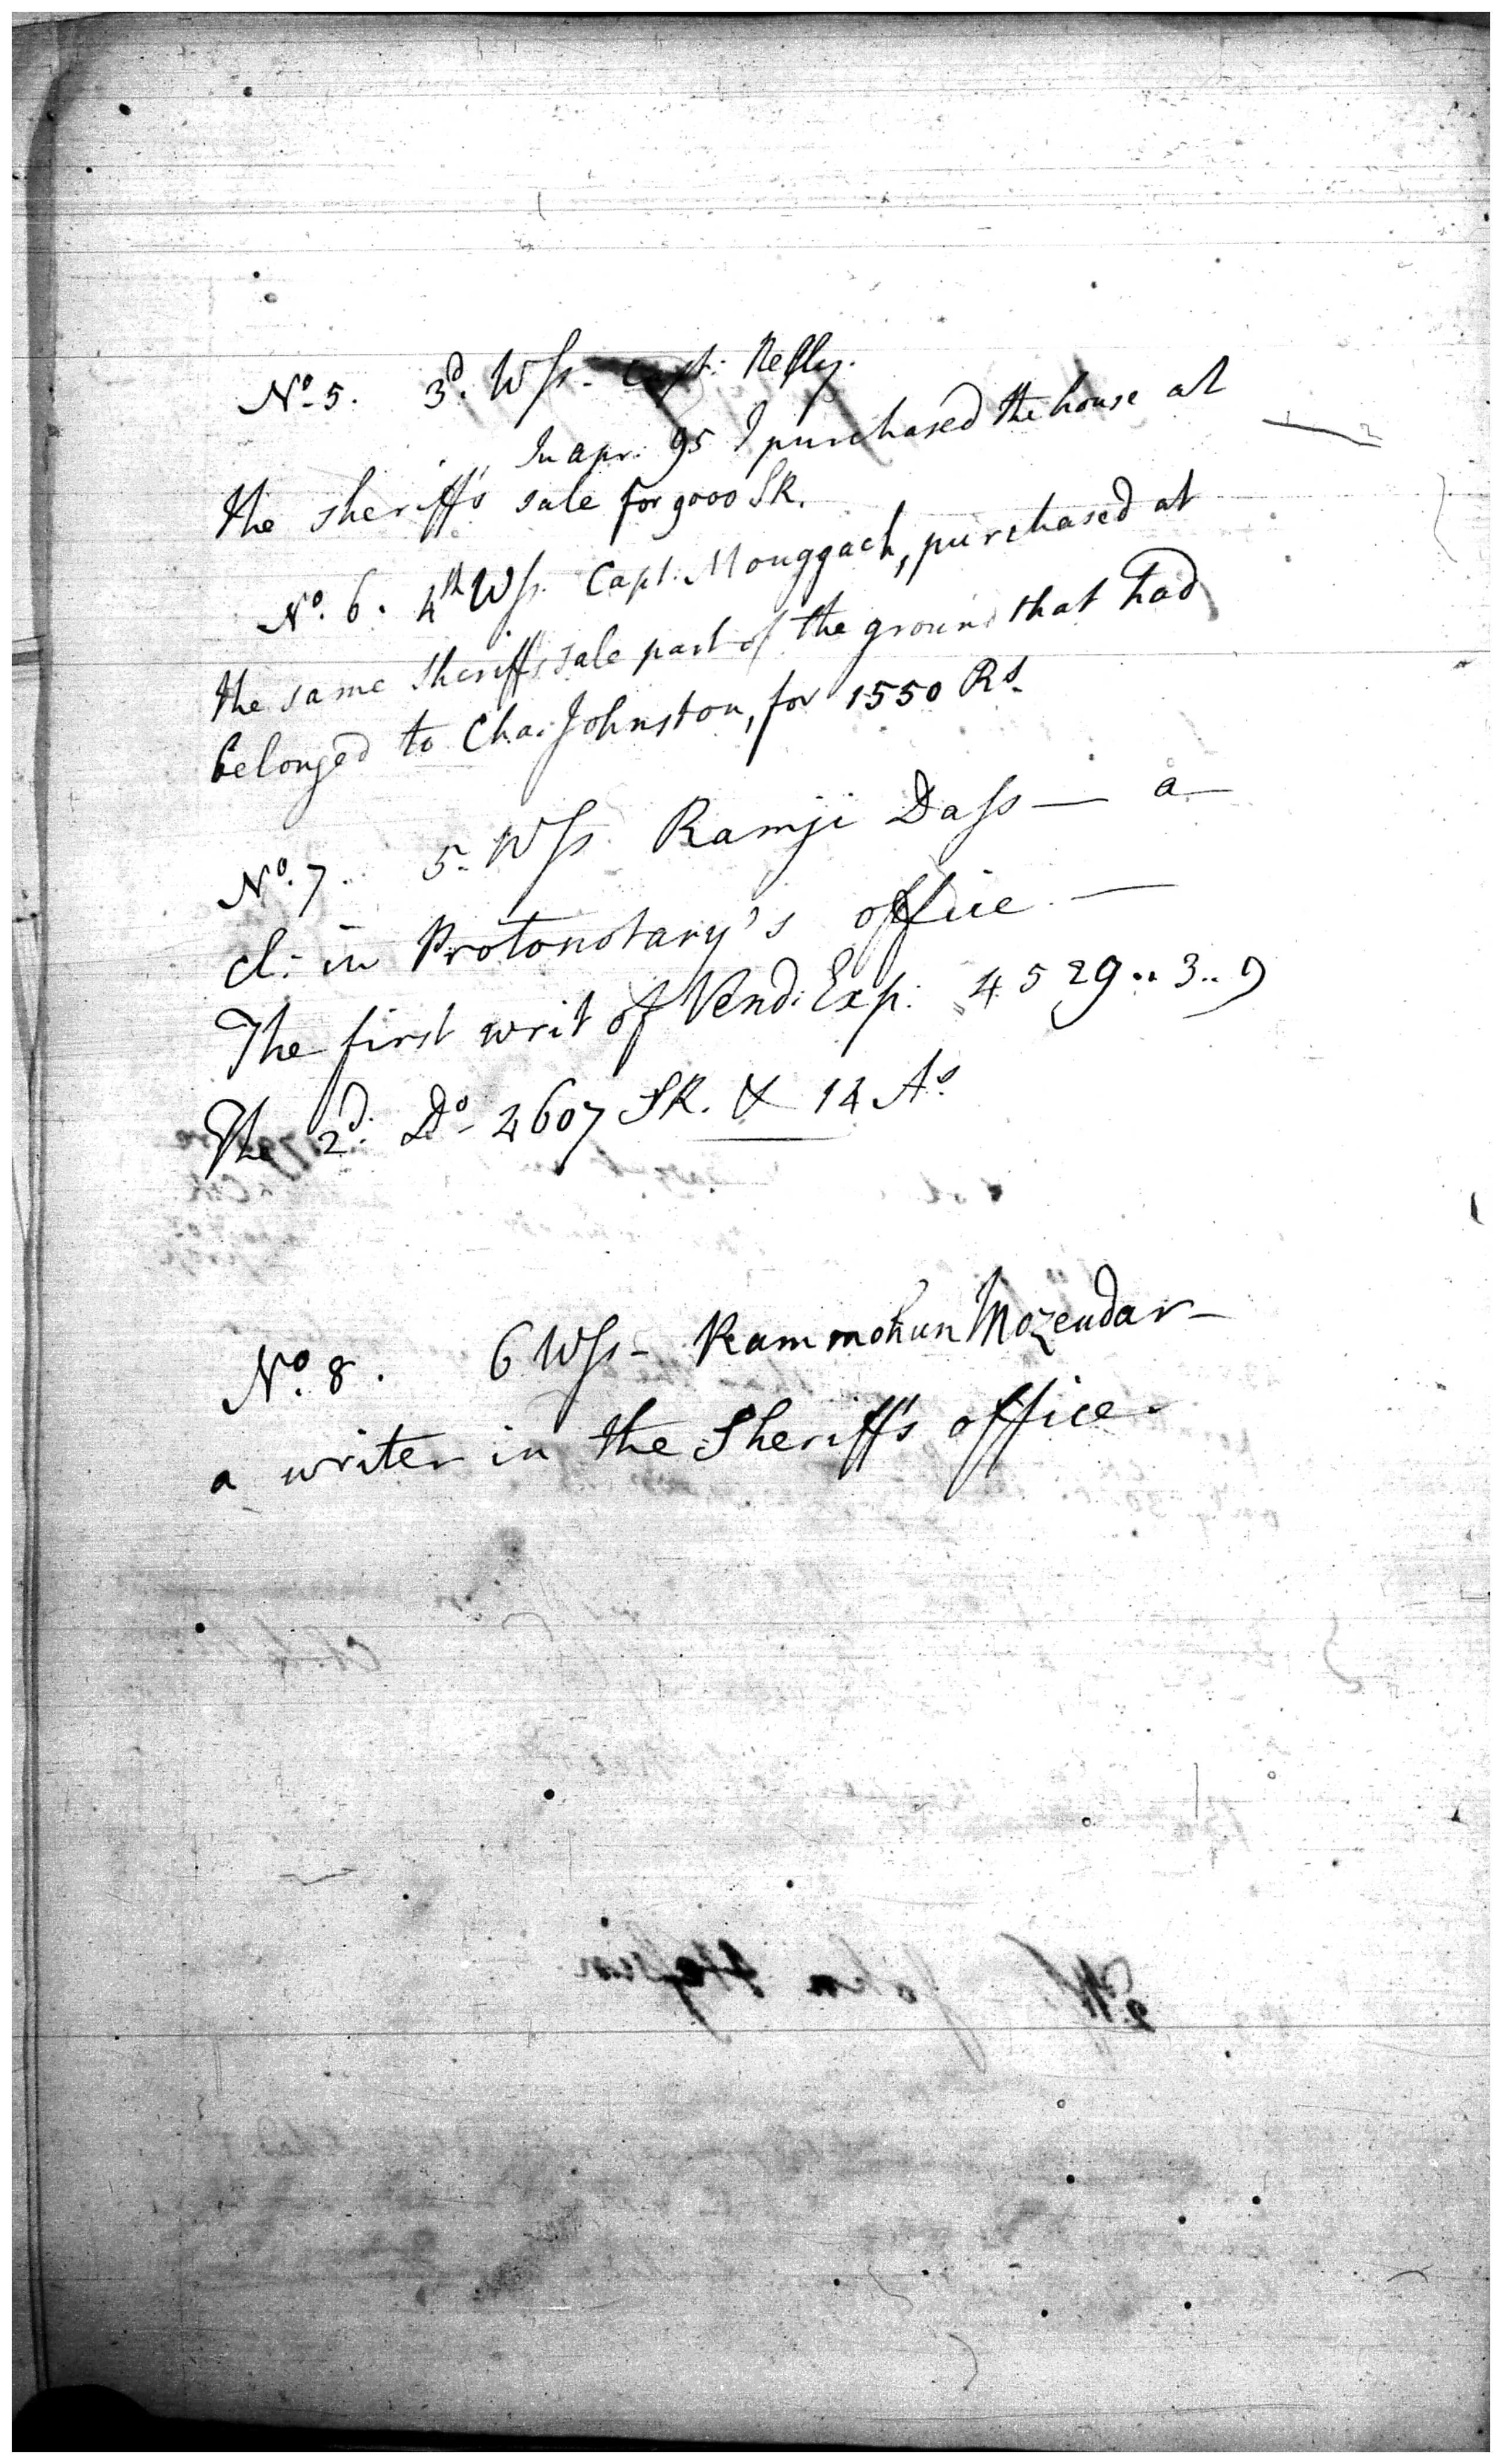 No. 5. 3d. Wss - Capt: Kelly.
In apr: 95 I purchased the house at
the sheriff's sale for 9000 SR.
No. 6. 4th Wss. Capt. Mouggach, purchased at
the same Sheriff's sale part of the ground that had
belonged to Cha: Johnston, for 1550 Rs.
No. 7. 5. Wss. Ramji Dass — a
cl: in Protonotary's office —
The first writ of Vend: Exp: 4529..3..9
The 2d. Do. 4607 SR. & 14 As
No. 8. 6 Wss - Rammohun Mozendar -
a writer in the Sheriff's office.